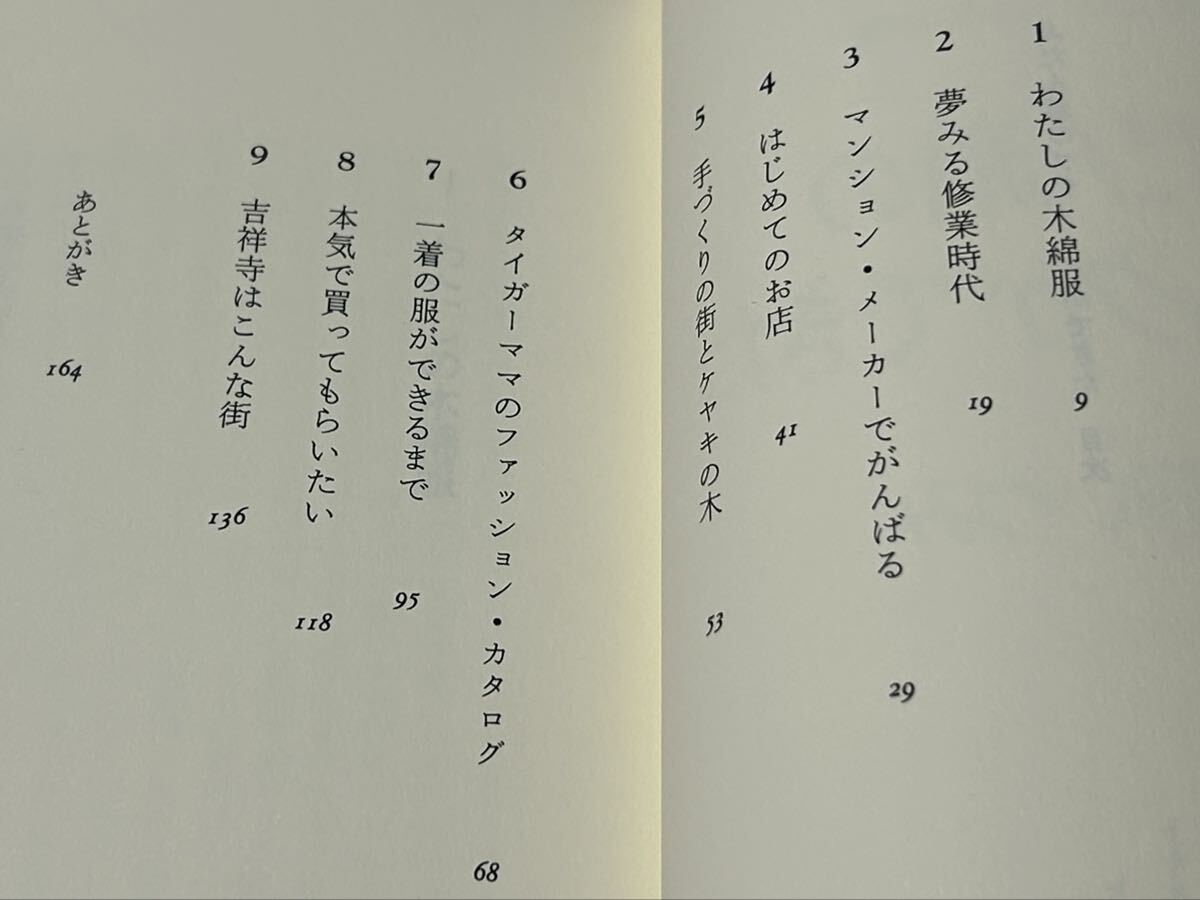 1 わたしの木綿服 9
2 夢みる修業時代 19
3 マンション・メーカーでがんばる 29
4 はじめてのお店 41
5 手づくりの街とケヤキの木 53
6 タイガーママのファッション・カタログ 68
7 一着の服ができるまで 95
8 本気で買ってもらいたい 118
9 吉祥寺はこんな街 136
あとがき 164